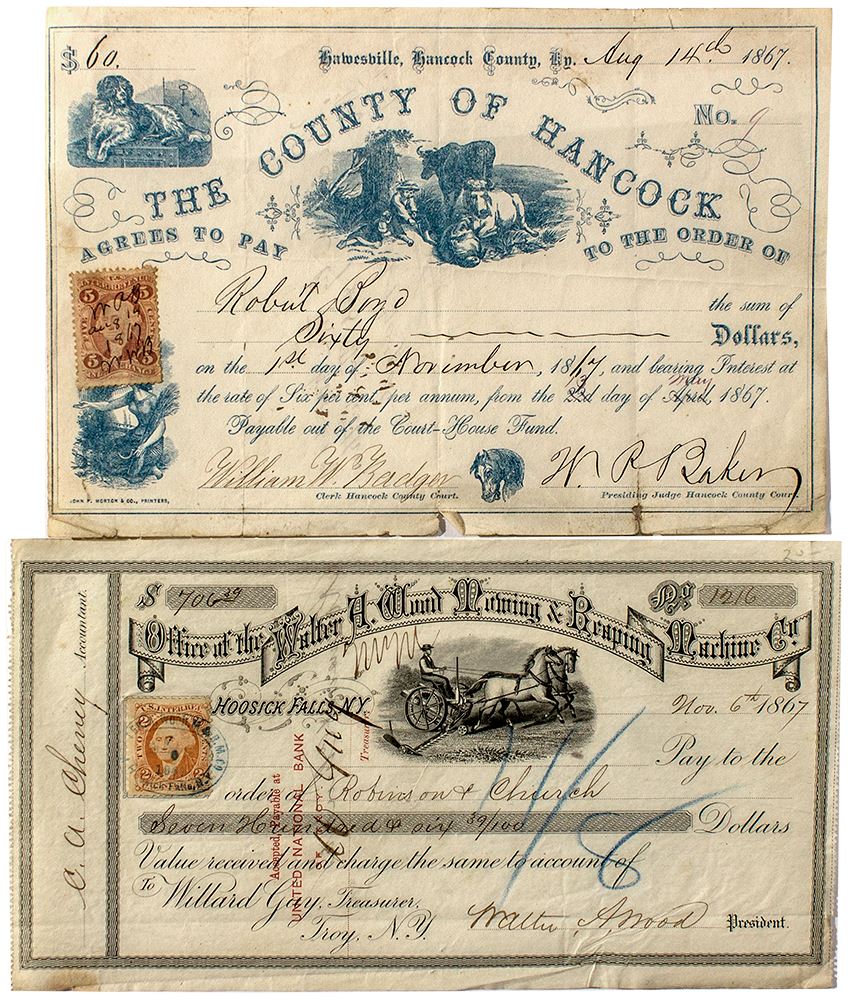 $ 60.
Hawesville, Hancock County, Ky. Aug 14th 1867.
No. 9
THE COUNTY OF HANCOCK
AGREES TO PAY TO THE ORDER OF
Robert Boyd the sum of
Sixty Dollars,
on the 1st day of November, 1867, and bearing Interest at
the rate of Six per cent, per annum, from the 22d day of April, 1867.
13 May
Payable out of the Court-House Fund.
William W. Badger W. P. Baker
Clerk Hancock County Court. Presiding Judge Hancock County Court.
JOHN P. MORTON & CO., PRINTERS,
5 5
5 5
$ 706 39
No 1216
Office of the Walter A. Wood Mowing & Reaping Machine Co.
HOOSICK FALLS, N.Y. Nov. 6th 1867
Pay to the
order of Robinson & Church
Seven Hundred & six 39/100 Dollars
Value received and charge the same to account of
To Willard Gay, Treasurer.
Troy, N.Y.
Walter A. Wood President.
C. A. Cheney Accountant.
Accepted, Payable at
UNITED NATIONAL BANK
Treasurer
U.S. INTER. REV.
2 2
TWO CENTS